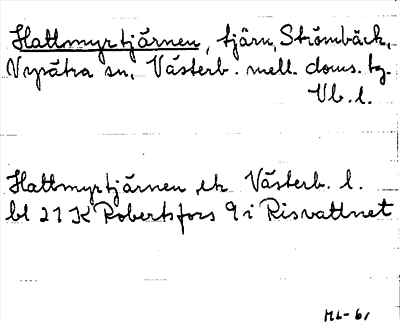 Hattmyrtjärnen, tjärn, Strömbäck,
Nysätra sn, Västerb. mell. doms. tg.
Vb. l.
Hattmyrtjärnen, ek Västerb. l.
bl 21 K Robertsfors 9 i Risvattnet
ML-61